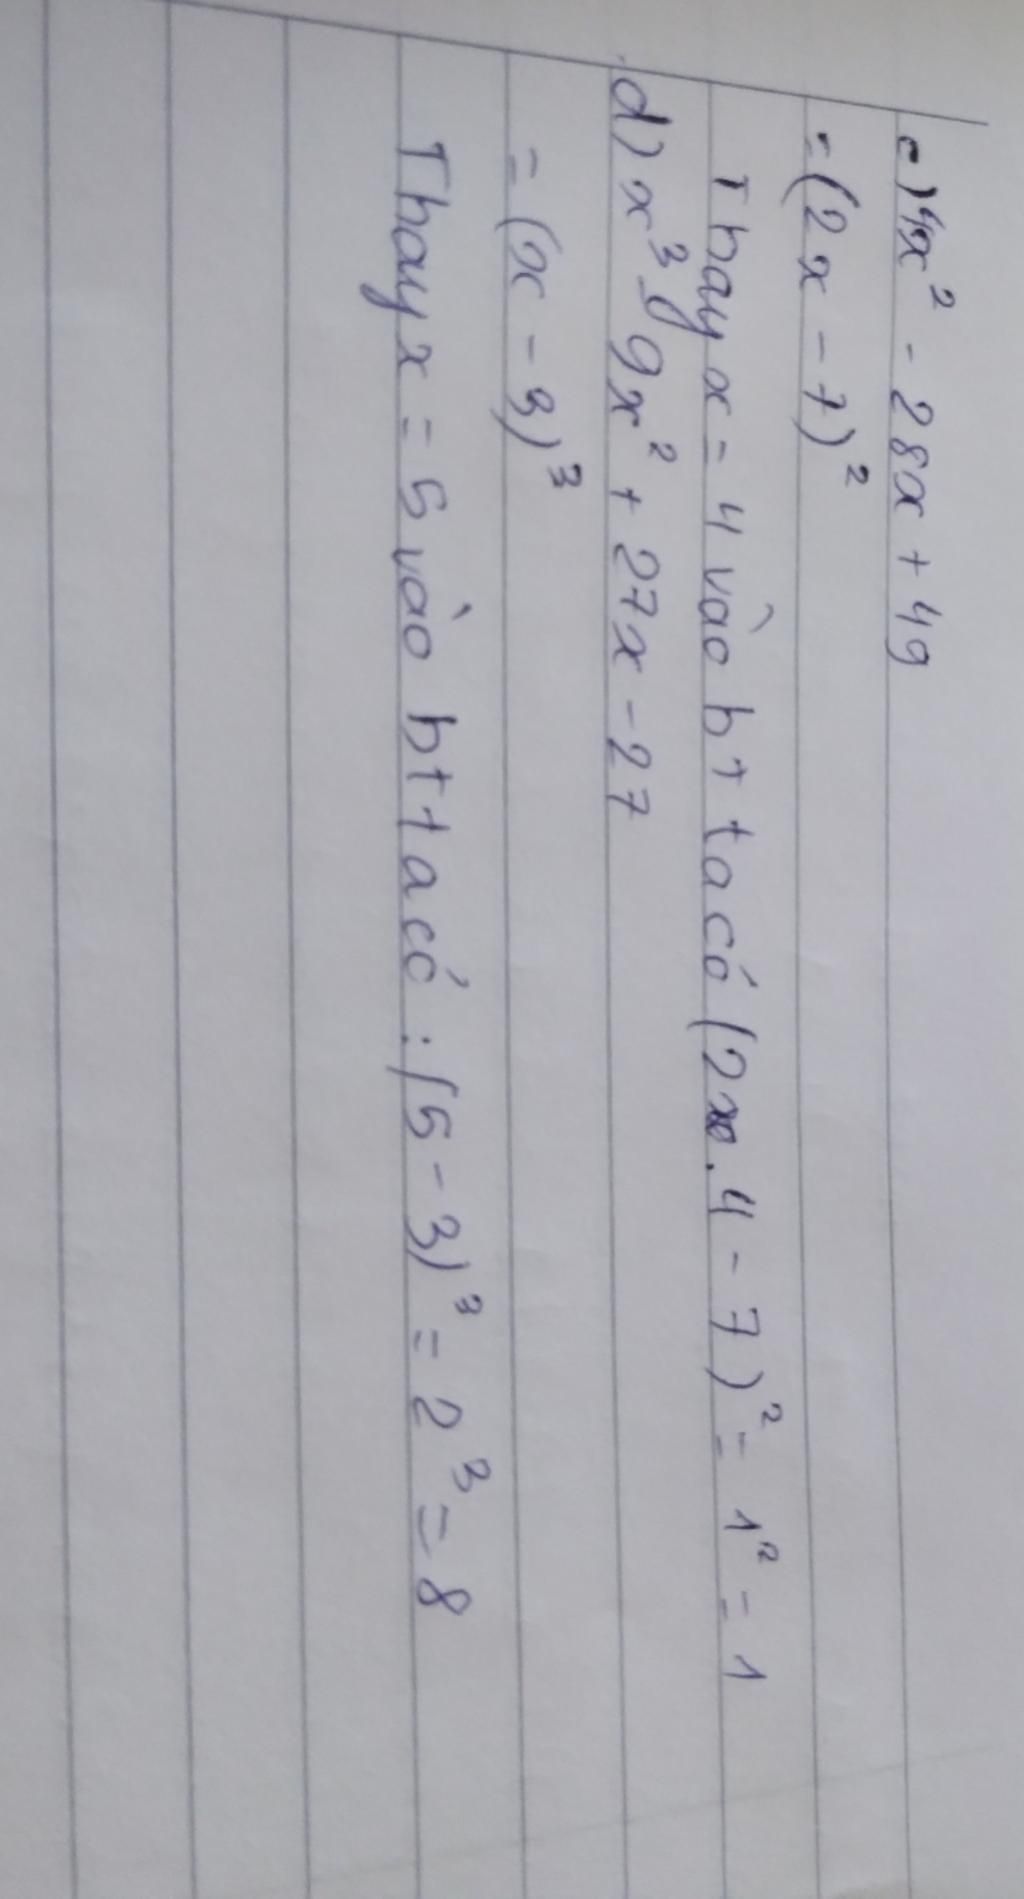 c) 4x² - 28x + 49
= (2x - 7)²
Thay x = 4 vào bt ta có (2.4 - 7)² = 1² = 1
d) x³ - 9x² + 27x - 27
= (x - 3)³
Thay x = 5 vào bt ta có : (5 - 3)³ = 2³ = 8